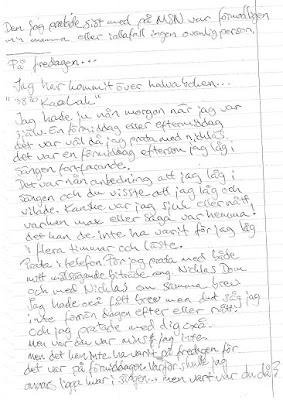 Den jag pratade sist med på MSN var förmodligen
min mamma eller iallafall ingen ovanlig person.
På fredagen...
Jag har kommit över halva boken...
Jag hade ju nån morgon när jag var
sjuk. En förmiddag eller eftermiddag
det var väl då jag prata med nichlas
det var en förmiddag eftersom jag låg i
sängen fortfarande.
Det var nån anledning att jag låg i
sängen och du visste att jag låg och
vilade. Kanske var jag sjuk eller nått
varken max eller saga var hemma!
det kan de inte ha varit för jag låg
i flera timmar och läste.
Prata i telefon. För jag prata med både
mitt målsägande biträde ang. Nicklas Dom
och med Nicklas om samma brev
Jag hade oxå fått brev men det såg jag
inte förrän dagen efter eller nått!
och jag pratade med dig oxå.
men var du var minns jag inte.
men det kan inte ha varit på fredagen för
det var på förmiddagen varför skulle jag
annars ligga kvar i sängen... men vart var du då?